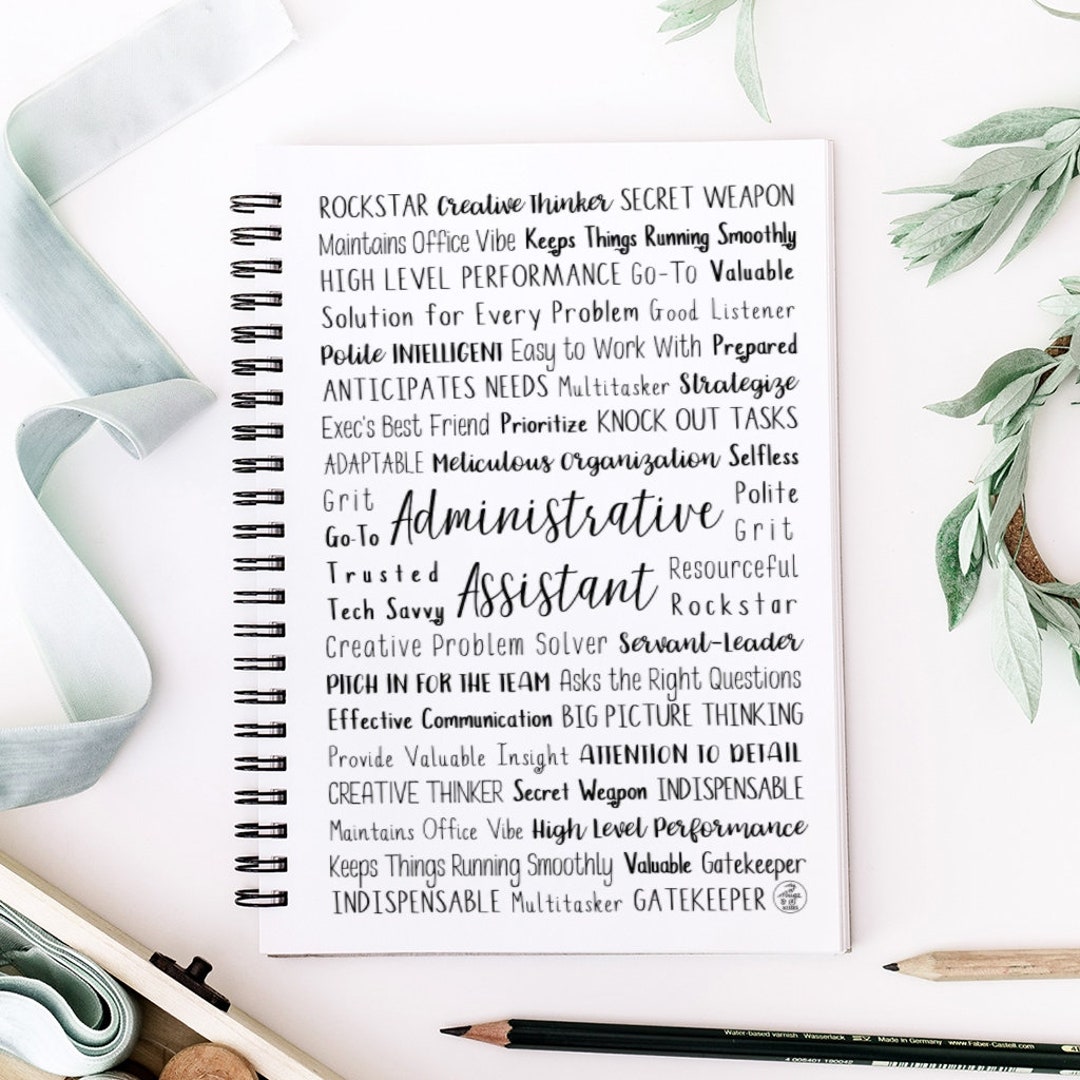 ROCKSTAR Creative Thinker SECRET WEAPON
Maintains Office Vibe Keeps Things Running Smoothly
HIGH LEVEL PERFORMANCE Go-To Valuable
Solution for Every Problem Good Listener
Polite INTELLIGENT Easy to Work With Prepared
ANTICIPATES NEEDS Multitasker Strategize
Exec's Best Friend Prioritize KNOCK OUT TASKS
ADAPTABLE Meticulous Organization Selfless
Grit
Go-To
Administrative
Polite
Grit
Trusted
Tech Savvy
Assistant
Resourceful
Rockstar
Creative Problem Solver Servant-Leader
PITCH IN FOR THE TEAM Asks the Right Questions
Effective Communication BIG PICTURE THINKING
Provide Valuable Insight ATTENTION TO DETAIL
CREATIVE THINKER Secret Weapon INDISPENSABLE
Maintains Office Vibe High Level Performance
Keeps Things Running Smoothly Valuable Gatekeeper
INDISPENSABLE Multitasker GATEKEEPER
Water-based varnish Wasserlack Made in Germany www.Faber-Castell.com
4 005401 190042